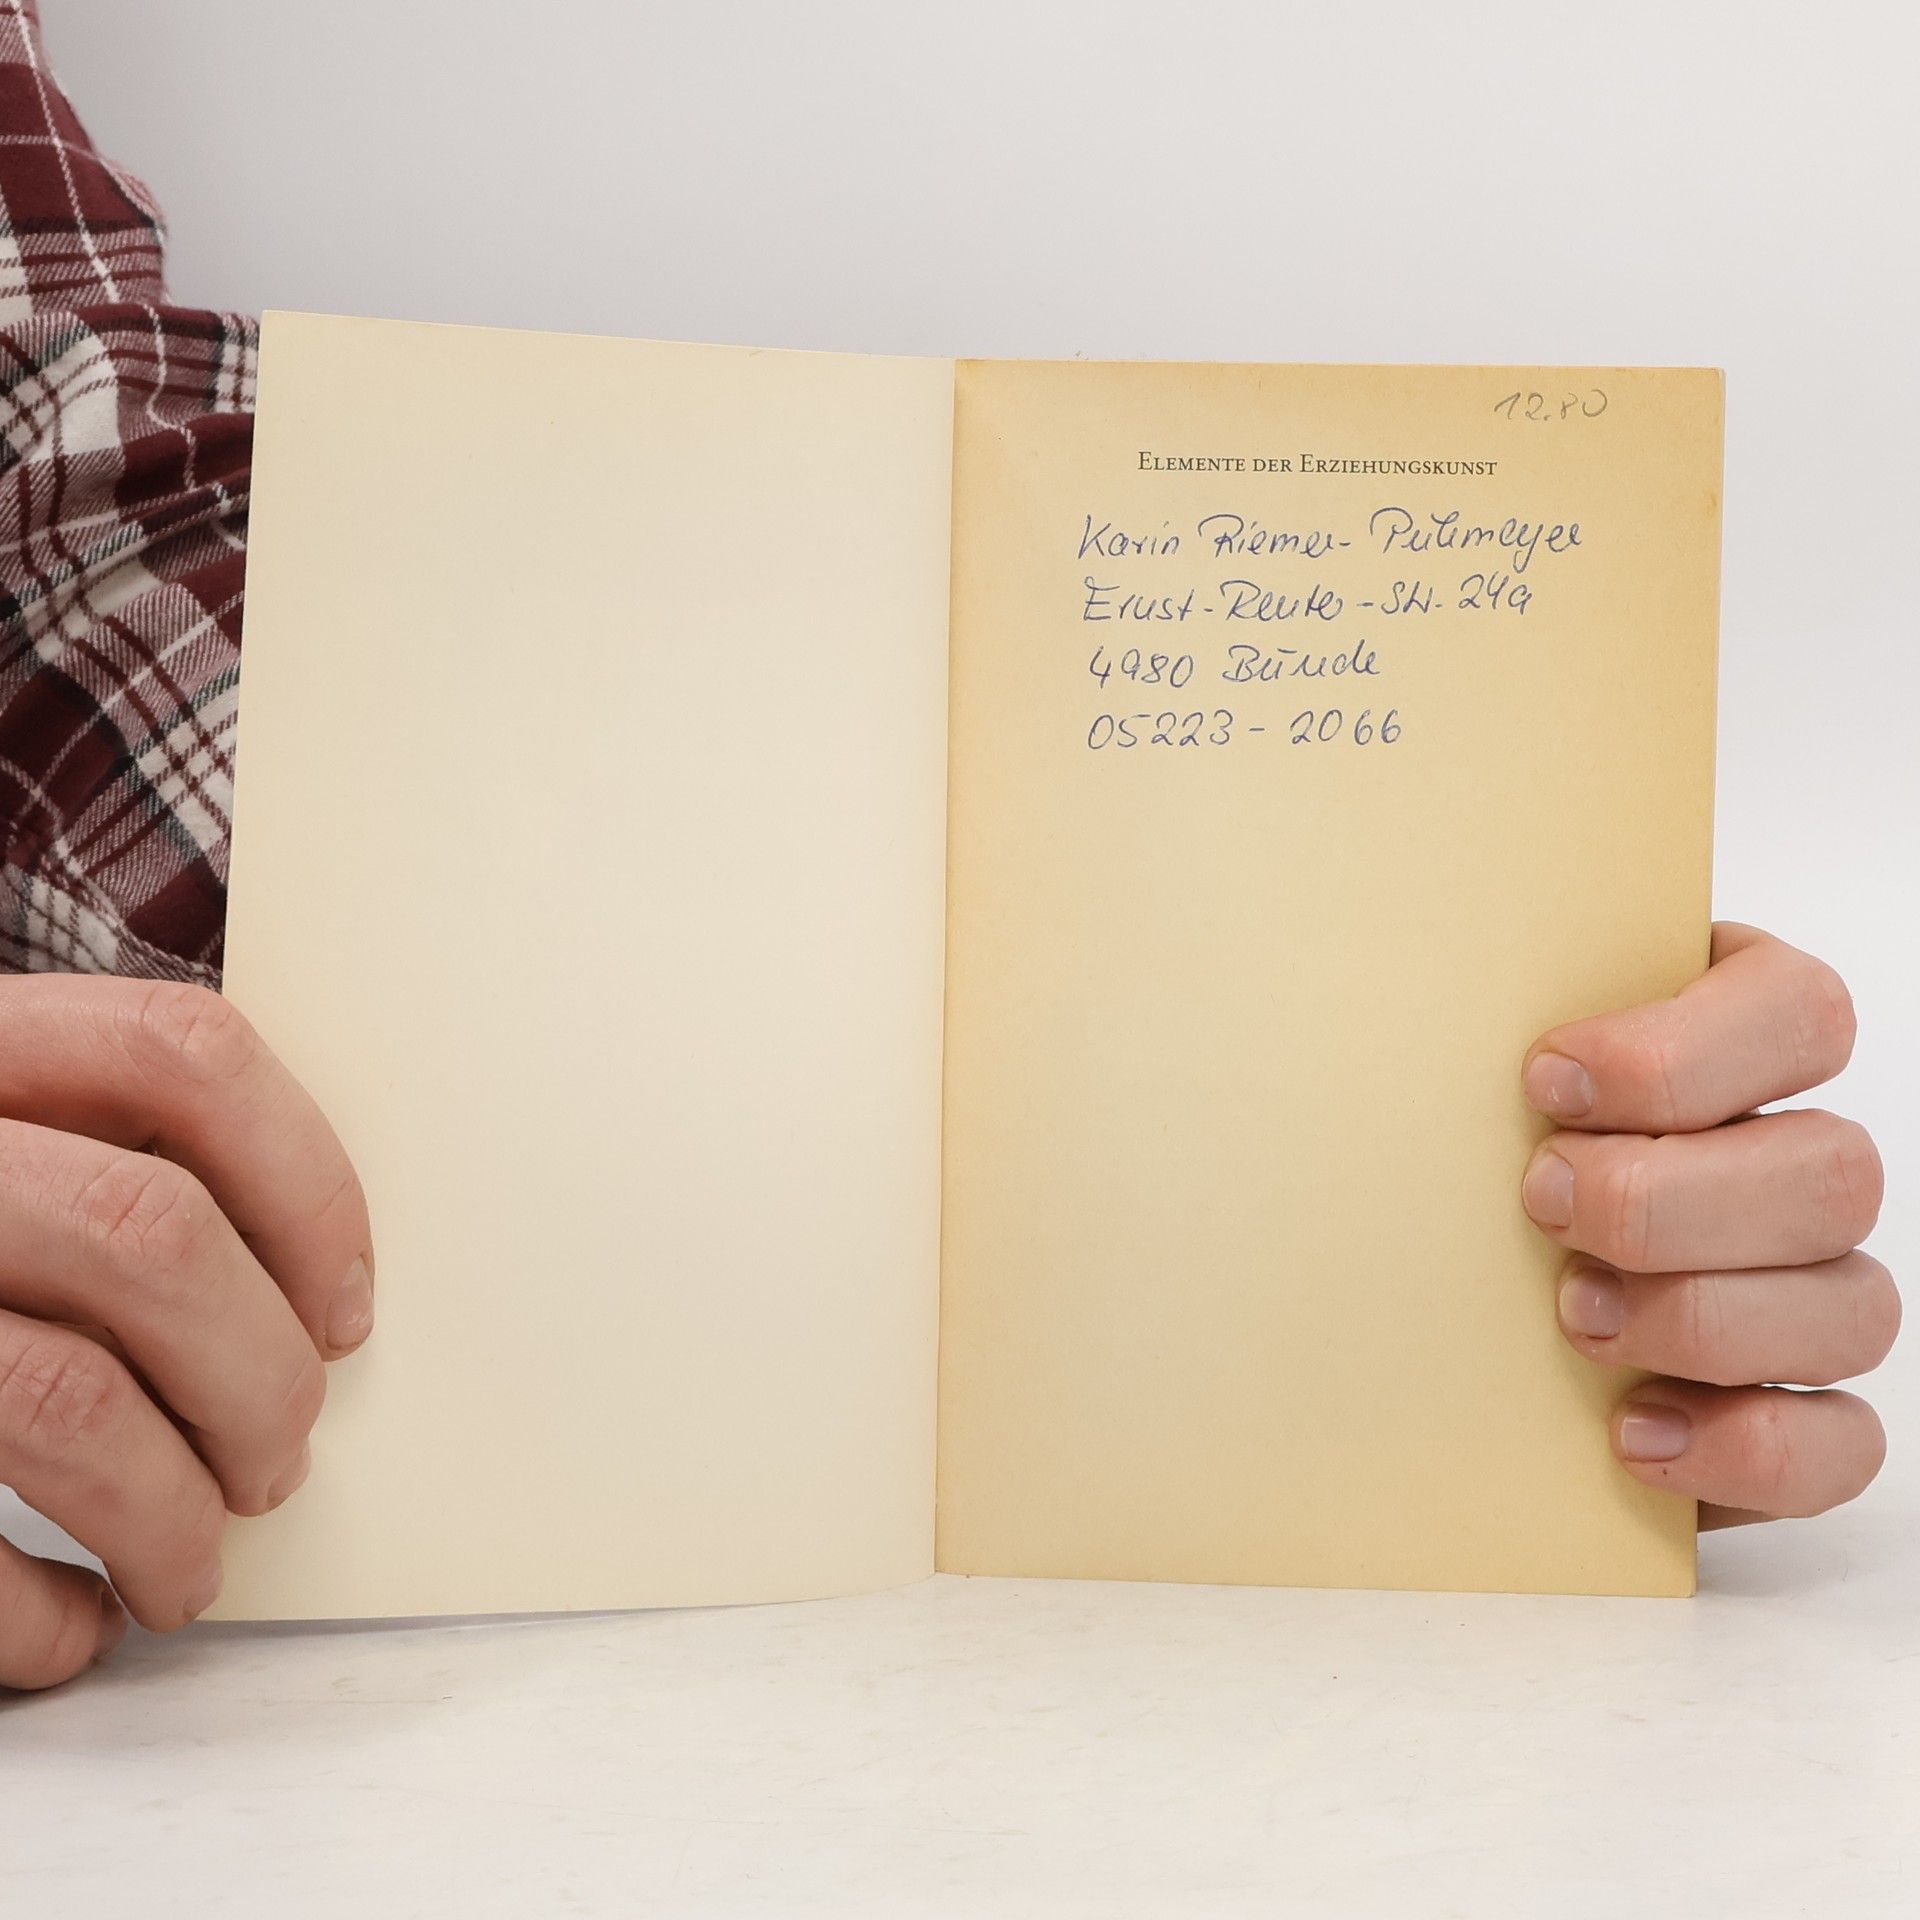 12.80
ELEMENTE DER ERZIEHUNGSKUNST
Karin Riemer-
Ernst-Reuter-Str. 24a
4980 Bünde
05223-2066